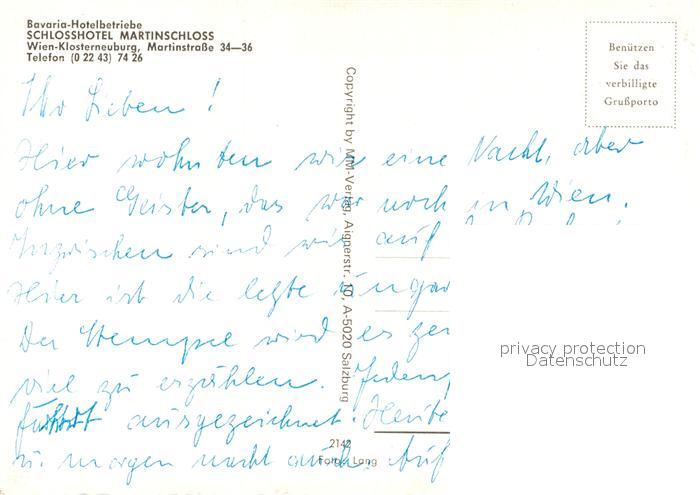 Bavaria-Hotelbetriebe
SCHLOSSHOTEL MARTINSCHLOSS
Wien-Klosterneuburg, Martinstraße 34—36
Telefon (0 22 43) 74 26
Benützen
Sie das
verbilligte
Grußporto
Copyright by MM-Verlag, Aignerstr. 10, A-5020 Salzburg
Ihr Lieben!
Hier wohnten wir eine Nacht, aber
ohne Geister, das war noch in Wien.
Inzwischen sind wir auf
Hier ist die letzte
Der Stempel wird es
viel zu erzählen.
ausgezeichnet. Heute
u. morgen nacht auch. Auf
2142
Lang
privacy protection
Datenschutz